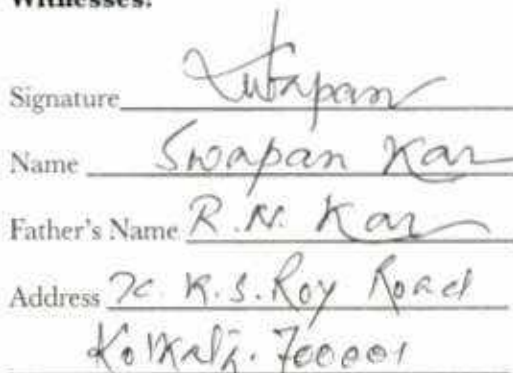 Witnesses:
Signature
Name Swapan Kar
Father's Name R.N. Kar
Address 7C. K.S. Roy Road
Kolkata. 700001